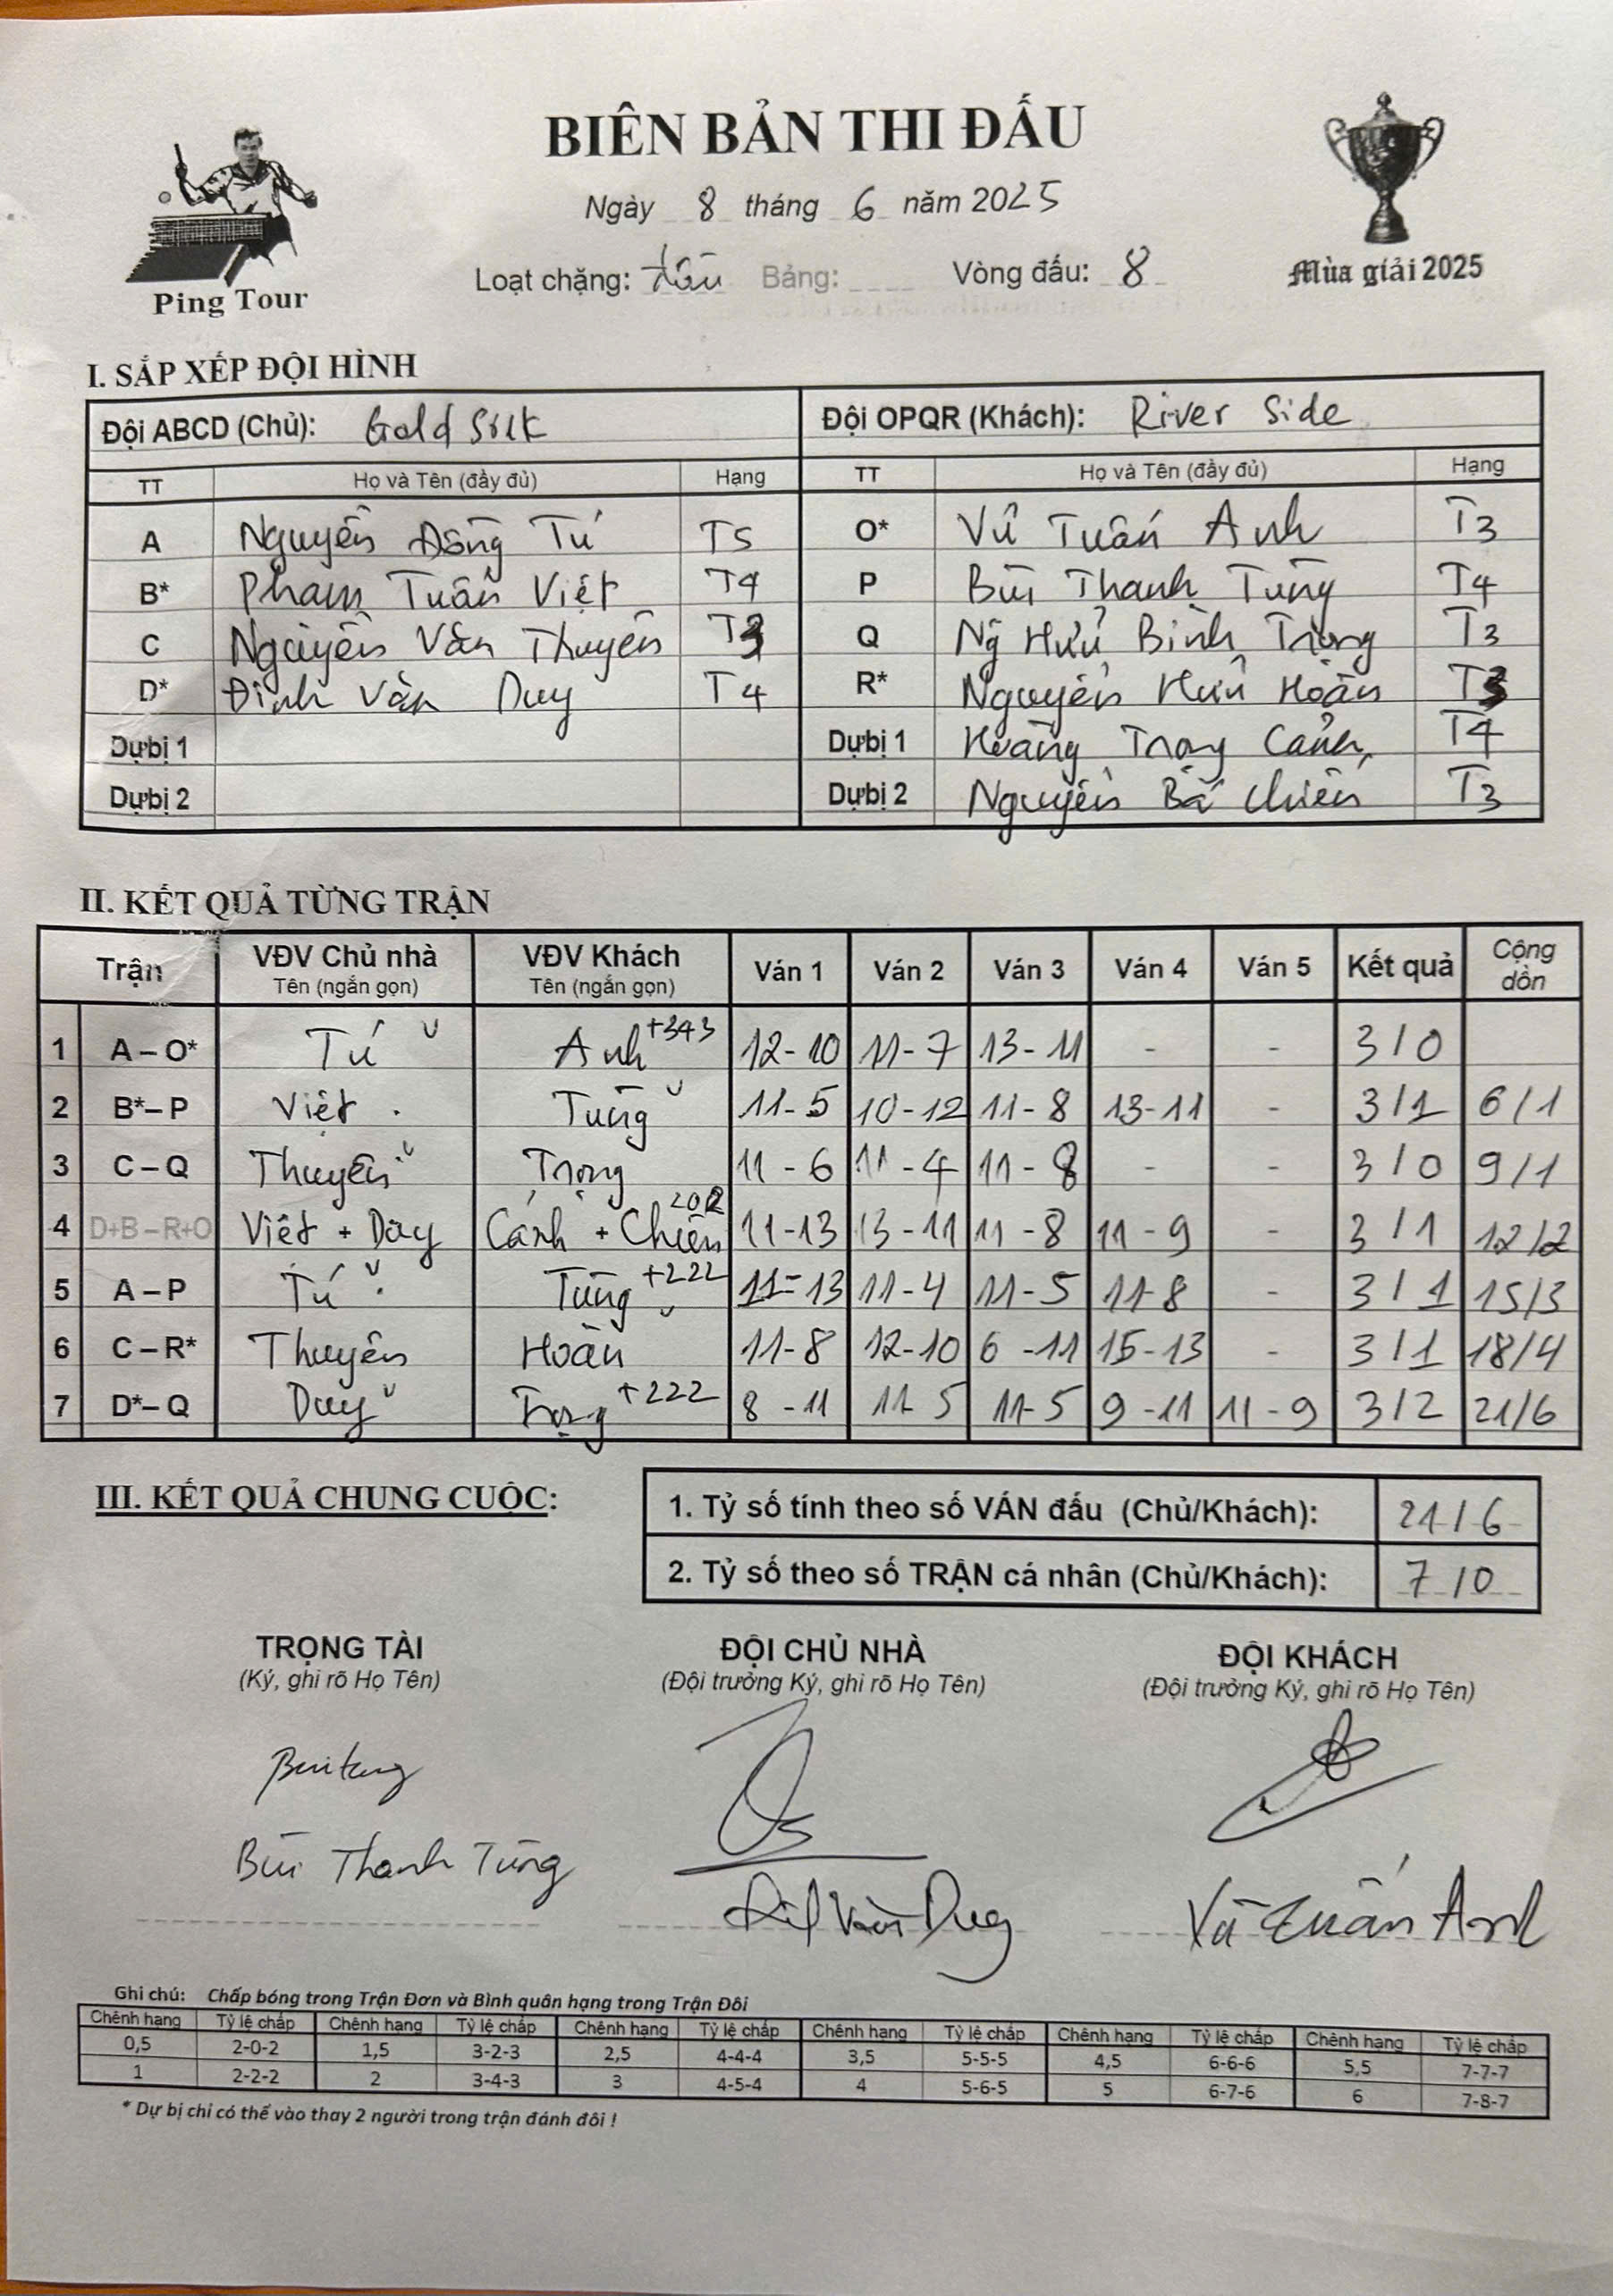 BIÊN BẢN THI ĐẤU
Ngày 8 tháng 6 năm 2025
Loạt chặng: Bảng: Vòng đấu: 8
Ping Tour
Mùa giải 2025
I. SẮP XẾP ĐỘI HÌNH
Đội ABCD (Chủ): Gold Silk Đội OPQR (Khách): River Side
TT Họ và Tên (đầy đủ) Hạng TT Họ và Tên (đầy đủ) Hạng
A Nguyễn Đông Tú T5 O* Vũ Tuấn Anh T3
B* Phạm Tuấn Việt T4 P Bùi Thanh Tùng T4
C Nguyễn Văn Thuyên T3 Q Ng Hữu Bình Trọng T3
D* Đinh Văn Duy T4 R* Nguyễn Hữu Hoàn T3
Dự bị 1 Dự bị 1 Hoàng Trọng Cảnh T4
Dự bị 2 Dự bị 2 Nguyễn Bá Chiến T3
II. KẾT QUẢ TỪNG TRẬN
Trận VĐV Chủ nhà VĐV Khách Ván 1 Ván 2 Ván 3 Ván 4 Ván 5 Kết quả Cộng dồn
Tên (ngắn gọn) Tên (ngắn gọn)
1 A – O* Tú Anh +343 12-10 11-7 13-11 - - 3/0
2 B*– P Việt Tùng 11-5 10-12 11-8 13-11 - 3/1 6/1
3 C – Q Thuyên Trọng 11-6 11-4 11-8 - - 3/0 9/1
4 D+B – R+O Việt + Duy Cảnh + Chiến 202 11-13 13-11 11-8 11-9 - 3/1 12/2
5 A – P Tú Tùng +222 11-13 11-4 11-5 11-8 - 3/1 15/3
6 C – R* Thuyên Hoàn 11-8 12-10 6-11 15-13 - 3/1 18/4
7 D*– Q Duy Trọng +222 8-11 11-5 11-5 9-11 11-9 3/2 21/6
III. KẾT QUẢ CHUNG CUỘC:
1. Tỷ số tính theo số VÁN đấu (Chủ/Khách): 21/6
2. Tỷ số theo số TRẬN cá nhân (Chủ/Khách): 7/0
TRỌNG TÀI ĐỘI CHỦ NHÀ ĐỘI KHÁCH
(Ký, ghi rõ Họ Tên) (Đội trưởng Ký, ghi rõ Họ Tên) (Đội trưởng Ký, ghi rõ Họ Tên)
Bùi Thanh Tùng Đinh Văn Duy Vũ Tuấn Anh
Ghi chú: Chấp bóng trong Trận Đơn và Bình quân hạng trong Trận Đôi
Chênh hạng Tỷ lệ chấp Chênh hạng Tỷ lệ chấp Chênh hạng Tỷ lệ chấp Chênh hạng Tỷ lệ chấp Chênh hạng Tỷ lệ chấp Chênh hạng Tỷ lệ chấp
0,5 2-0-2 1,5 3-2-3 2,5 4-4-4 3,5 5-5-5 4,5 6-6-6 5,5 7-7-7
1 2-2-2 2 3-4-3 3 4-5-4 4 5-6-5 5 6-7-6 6 7-8-7
* Dự bị chỉ có thể vào thay 2 người trong trận đánh đôi !